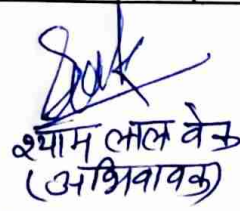 श्याम लाल वेक
(अभिवावक)